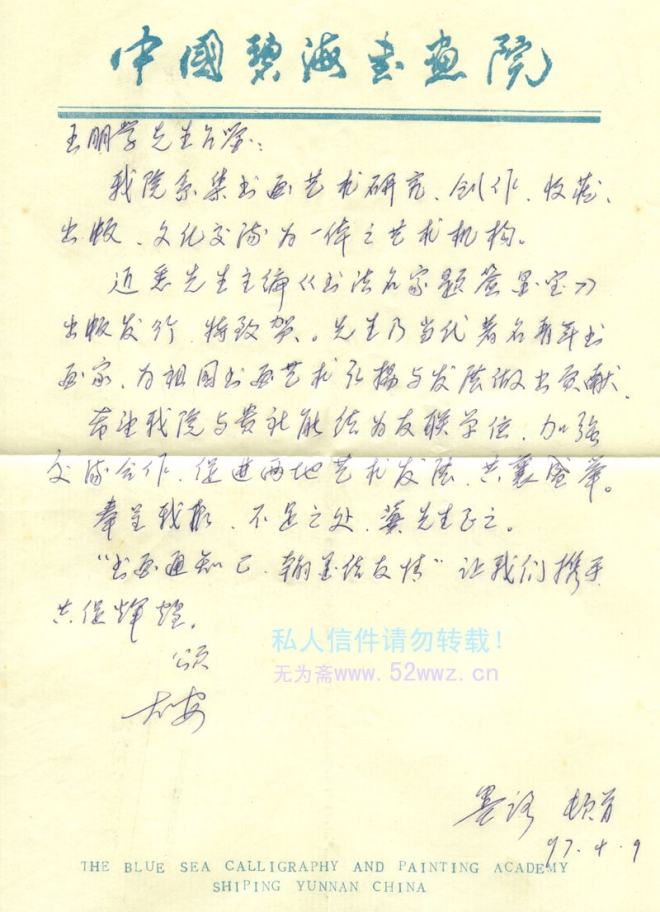 中國碧海書畫院
王明学先生台鉴：
我院系集书画艺术研究、创作、收藏、
出版、文化交流为一体之艺术机构。
近悉先生主编《书法名家题签墨宝》
出版发行，特致贺。先生乃当代著名青年书
画家，为祖国书画艺术弘扬与发展做出贡献。
希望我院与贵社能结为友联单位，加强
交流合作，促进两地艺术发展，共襄盛举。
奉呈我报，不足之处，冀先生正之。
“书画通知己，翰墨结友情”让我们携手
共促辉煌。
颂
大安
墨 顿首
97.4.9
私人信件请勿转载！
无为斋www.52wwz.cn
THE BLUE SEA CALLIGRAPHY AND PAINTING ACADEMY
SHIPING YUNNAN CHINA